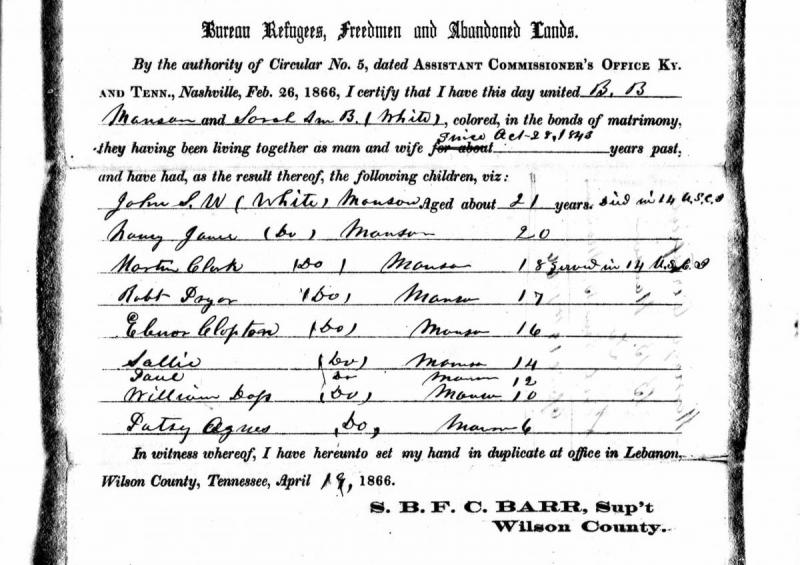 Bureau Refugees, Freedmen and Abandoned Lands.
By the authority of Circular No. 5, dated Assistant Commissioner's Office Ky.
and Tenn., Nashville, Feb. 26, 1866, I certify that I have this day united B. B
Manson and Sarah Ann B. (White), colored, in the bonds of matrimony,
since Oct-28, 1843
they having been living together as man and wife for about years past,
and have had, as the result thereof, the following children, viz:
John S. W (White) Manson Aged about 21 years. Died in 14 U.S.C.I
Nancy Jane (Do) Manson 20
Martin Clark (Do) Manson 18 Served in 14 U.S.C.I
Robt Pryor (Do) Manson 17
Elenor Clopton (Do) Manson 16
Sallie (Do) Manson 14
Do Manson 12
William (Do) Manson 10
Patsy Agnes (Do) Manson 6
In witness whereof, I have hereunto set my hand in duplicate at office in Lebanon,
Wilson County, Tennessee, April 19, 1866.
S. B. F. C. BARR, Sup't
Wilson County.